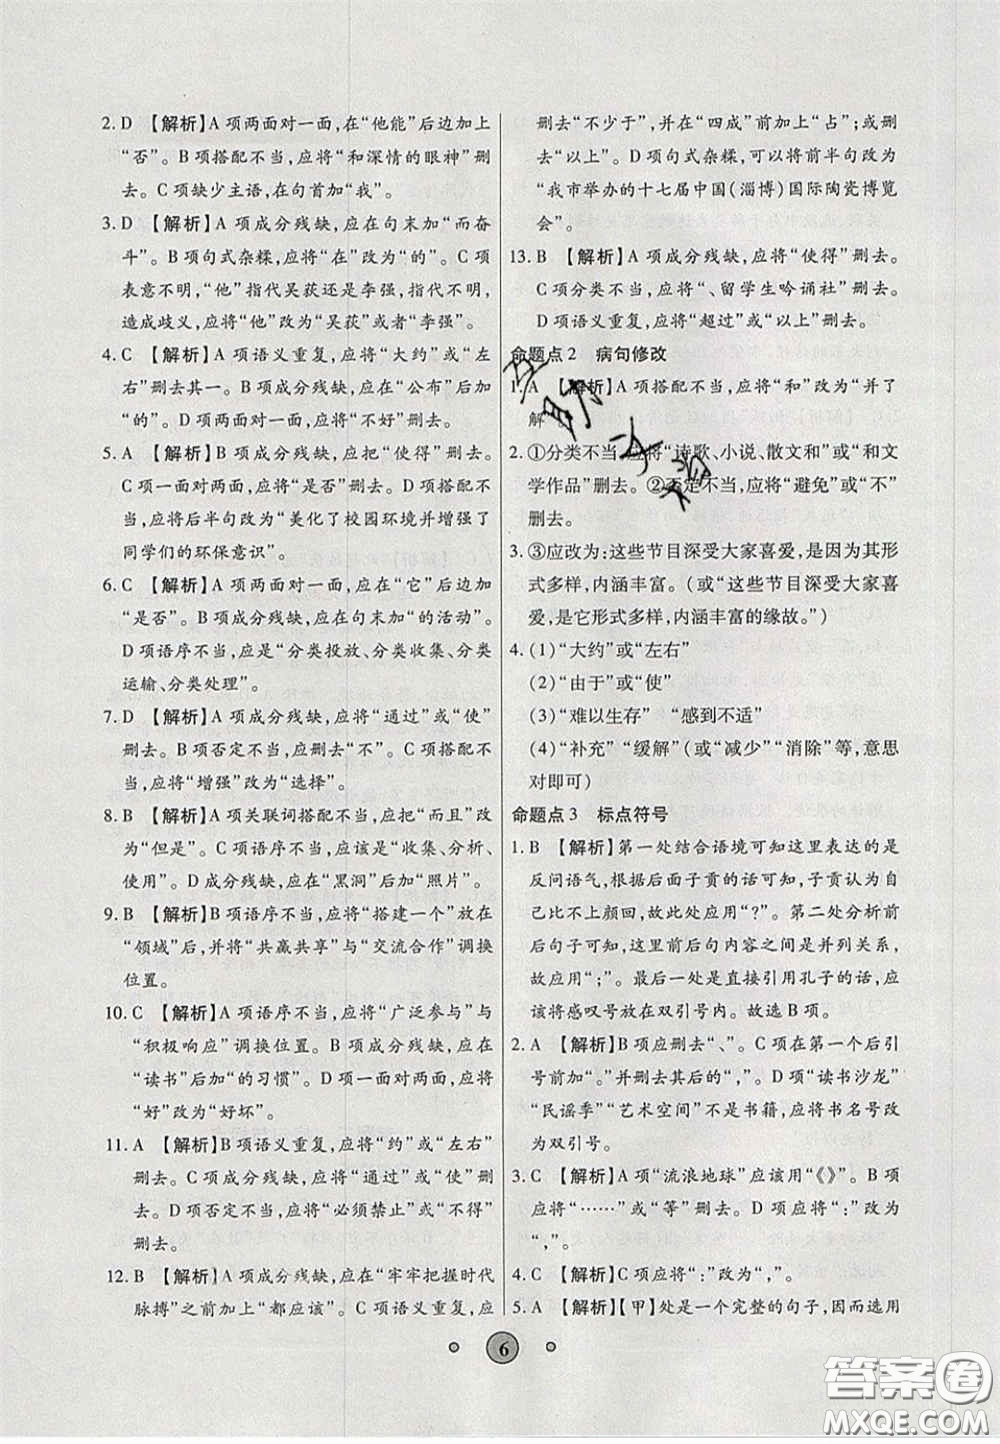 2. D 【解析】A 项两面对一面,在“他能”后边加上
“否”。B 项搭配不当,应将“和深情的眼神”删
去。C 项缺少主语,在句首加“我”。
3. D 【解析】A 项成分残缺,应在句末加“而奋
斗”。B 项句式杂糅,应将“在”改为“的”。C 项
表意不明,“他”指代吴荻还是李强,指代不明,
造成歧义,应将“他”改为“吴荻”或者“李强”。
4. C 【解析】A 项语义重复,应将“大约”或“左
右”删去其一。B 项成分残缺,应在“公布”后加
“的”。D 项两面对一面,应将“不好”删去。
5. A 【解析】B 项成分残缺,应把“使得”删去。
C 项一面对两面,应将“是否”删去。D 项搭配不
当,应将后半句改为“美化了校园环境并增强了
同学们的环保意识”。
6. C 【解析】A 项两面对一面,应在“它”后边加
“是否”。B 项成分残缺,应在句末加“的活动”。
D 项语序不当,应是“分类投放、分类收集、分类
运输、分类处理”。
7. D 【解析】A 项成分残缺,应将“通过”或“使”
删去。B 项否定不当,应删去“不”。C 项搭配不
当,应将“增强”改为“选择”。
8. B 【解析】A 项关联词搭配不当,应将“而且”改为
“但是”。C 项语序不当,应该是“收集、分析、
使用”。D 成分残缺,应在“黑洞”后加“照片”。
9. B 【解析】B 项语序不当,应将“搭建一个”放在
“领域”后,并将“共赢共享”与“交流合作”调换
位置。
10. C 【解析】A 项语序不当,应将“广泛参与”与
“积极响应”调换位置。B 项成分残缺,应在
“读书”后加“的习惯”。D 项一面对两面,应将
“好”改为“好坏”。
11. A 【解析】B 项语义重复,应将“约”或“左右”
删去。C 项成分残缺,应将“通过”或“使”删
去。D 项否定不当,应将“必须禁止”或“不得”
删去。
12. B 【解析】A 项成分残缺,应在“牢牢把握时代
脉搏”之前加上“都应该”。C 项语义重复,应
删去“不少于”,并在“四成”前加上“占”;或删
去“以上”。D 项句式杂糅,可以将前半句改为
“我市举办的十七届中国(淄博)国际陶瓷博览
会”。
13. B 【解析】A 项成分残缺,应将“使得”删去。
C 项分类不当,应将“、留学生吟诵社”删去。
D 项语义重复,应将“超过”或“以上”删去。
命题点 2 病句修改
1. A 【解析】A 项搭配不当,应将“和”改为“并了
解”。
2. ①分类不当,应将“诗歌、小说、散文和”或“和文
学作品”删去。②否定不当,应将“避免”或“不”
删去。
3. ③应改为:这些节目深受大家喜爱,是因为其形
式多样,内涵丰富。(或“这些节目深受大家喜
爱,是它形式多样,内涵丰富的缘故。”)
4. (1)“大约”或“左右”
(2)“由于”或“使”
(3)“难以生存” “感到不适”
(4)“补充” “缓解”(或“减少”“消除”等,意思
对即可)
命题点 3 标点符号
1. B 【解析】第一处结合语境可知这里表达的是
反问语气,根据后面子贡的话可知,子贡认为自
己比不上颜回,故此处应用“?”。第二处分析前
后句子可知,这里前后句内容之间是并列关系,
故应用“;”。最后一处是直接引用孔子的话,应
该将感叹号放在双引号内。故选 B 项。
2. A 【解析】B 项应删去“、”。C 项在第一个后引
号前加“。”并删去其后的“,”。D 项“读书沙龙”
“民谣季”“艺术空间”不是书籍,应将书名号改
为双引号。
3. C 【解析】A 项“流浪地球”应该用“《》”。B 项
应将“……”或“等”删去。D 项应将“:”改为
“,”。
4. C 【解析】C 项应将“:”改为“,”。
5. A 【解析】【甲】处是一个完整的句子,因而选用
6
答案圈
MXQE.COM